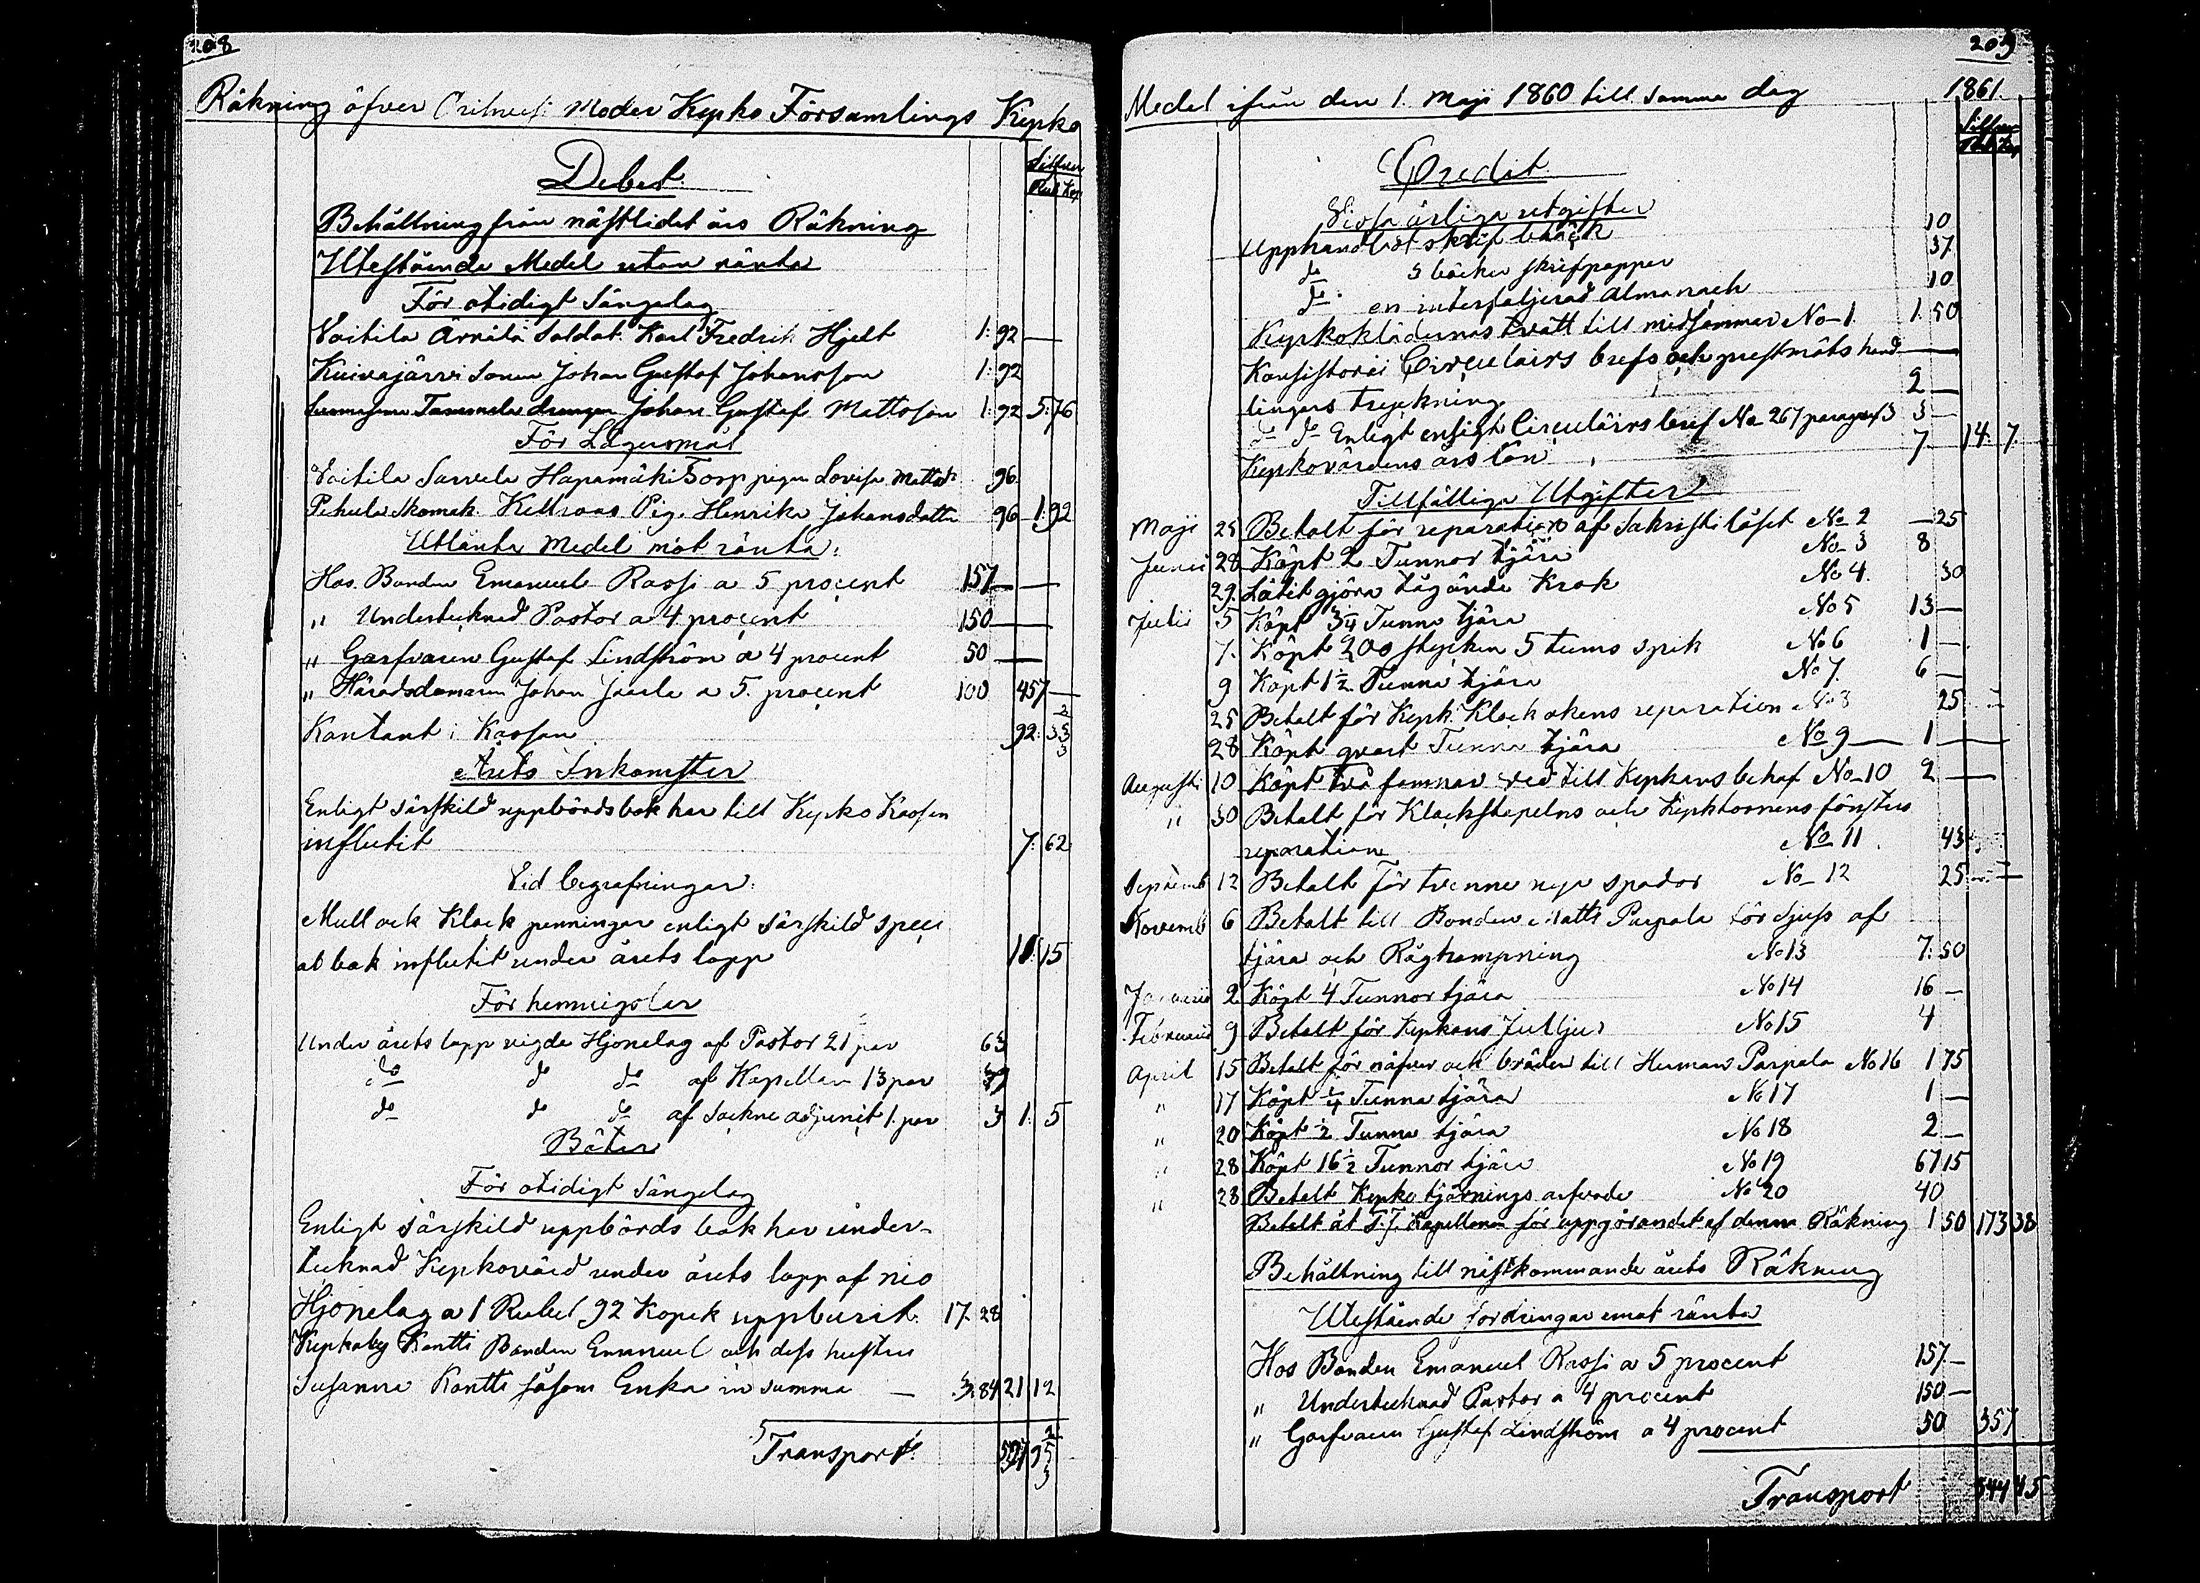 208
Räkning öfver Orihvesi Moder Kyrko Församlings Kyrko
Silfver
Rub Kop
Debet.
Behållning från nästlidet års Räkning
Utestående Medel utan ränta
För otidigt Sängelag
Voitila Arvila Soldat. Karl Fredrik Hjelt 1: 92 —
Kuivajärvi Sonen Johan Gustaf Johansson 1: 92
Tammela drengen Johan Gustaf Mattsson 1: 92 5: 76
För Lägersmål
Voitila Sarvela Hapamäki Torp pigan Lovisa Mattsd 96.
Pehula Skomak. Kellvaas Pig. Henrika Johansdotter 96 1: 92
Utlånta Medel mot ränta:
Hos Bonden Emanuel Rassi a 5 procent 157 — —
" Undertecknad Pastor a 4 procent 150 — —
" Garfvaren Gustaf Lindström a 4 procent 50 —
" Häradsdomaren Johan Jaarla a 5. procent 100 457 —
Kontant i Kassan 92. 33 2/3
Årets Inkomster
Enligt särskild uppbördsbok har till Kyrko Kassan
influtit 7: 62
Vid begrafningar:
Mull och Klock penningar enligt särskild speci
al bok influtit under årets lopp 11: 15
För hemmigslar
Under årets lopp vigda Hjonelag af Pastor 21 par 63
do do do af Kapellan 13 par 39
do do do af Sockne adjunct 1. par 3 1: 5
Böter
För otidigt Sängelag
Enligt särskild uppbörds bok har under-
tecknad Kyrkovärd under årets lopp af nio
Hjonelag a 1 Rubel 92 Kopek uppburit. 17. 28
Kyrkoby Kontti Bonden Emanuel och dess hustru
Susanna Kontti såsom Enka in summa — 3: 84 21 12
Transport. 597 95 2/3
209
Medel ifrån den 1. Maji 1860 till samma dag 1861.
Silfver
Rub. Kop
Credit
Vissa årliga utgifter
Upphandlat skrif bläck 10
do 3 böcker skrifpapper 37
do en interfoljerad Almanach 10
Kyrkoklädernas tvätt till midsommar No 1 1. 50
Konsistorii Circulairs brefs och prestmöts hand —
lingers tryckning 2 —
do do Enligt ensigt Circulärs bref No 267 paragraf 3 3 —
Kyrkovärdens års lön 7 — 14. 7.
Tillfälliga Utgifter
Maji 25 Betalt för reparation af Sakristi låset No 2 — 25
Junii 28 Köpt 2 Tunnor tjära No 3 8
29. Låtit gjöra tågände Krok No 4. 30
Julii 5 Köpt 3¼ Tunna tjära No 5 13 —
7. Köpt 200 stycken 5 tums spik No 6 1 —
9 Köpt 1½ Tunna tjära No 7. 6 —
25 Betalt för Kyrk. Klockokens reparation No 8 25
28 Köpt qvart Tunna tjära No 9 — 1 —
Augusti 10 Köpt två famnar ved till Kyrkans behof No 10 2 —
" 30 Betalt för Klockstapelns och Kyrktornens fönsters
reparation No 11 43
Septemb 12 Betalt för tvenne nya spador No 12 25
Novemb 6 Betalt till Bonden Matts Parpala för skjuss af
tjära och Rågtrampning No 13 7: 50
Januarii 2 Köpt 4 Tunnor tjära No 14 16 —
Februarii 9 Betalt för Kyrkans Julljus No 15 4
April 15 Betalt för näfver och bräder till Herman Parpala No 16 1 75
" 17 Köpt ¼ Tunna tjära No 17 1 —
" 20 Köpt ½ Tunna tjära No 18 2 —
" 28 Köpt 16½ Tunnor tjära No 19 67 15
" 28 Betalt Kyrko tjärnings arfvode No 20 40
Betalt åt T.f. Kapellanen för uppgörandet af denna Räkning 1 50 173 38
Behållning till nästkommande årets Räkning
Utestående fordringar emot ränta
Hos Bonden Emanuel Rassi a 5 procent 157. —
" Undertecknad Pastor a 4 procent 150 —
" Garfvaren Gustaf Lindström a 4 procent 50 357
Transport 544 45